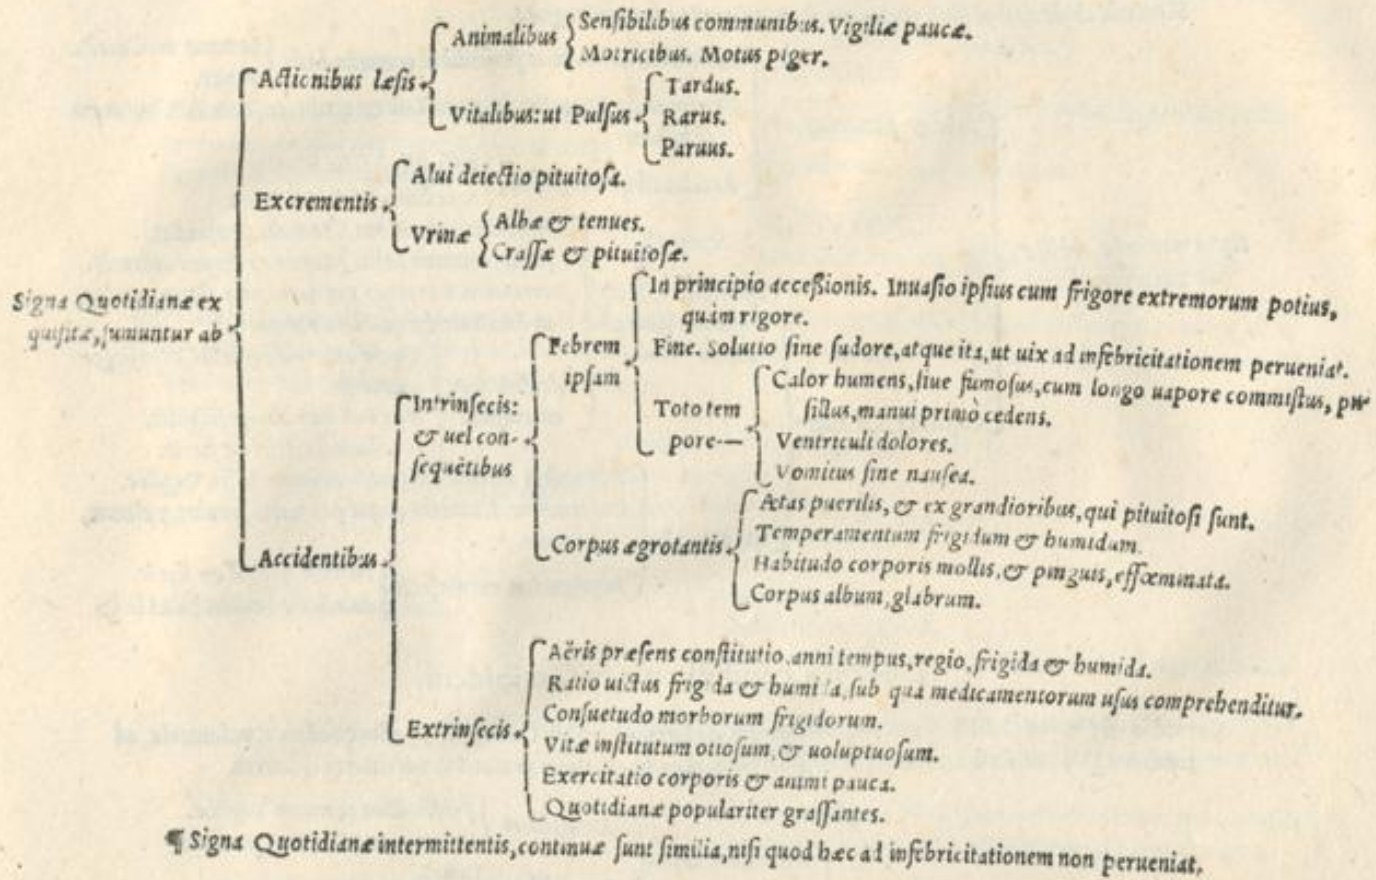 Animalibus
Sensibilibus communibus. Vigiliæ paucæ.
Motricibus. Motus piger.
Actionibus læsis.
Vitalibus: ut Pulsus
Tardus.
Rarus.
Paruus.
Excrementis
Alui deiectio pituitosa.
Vrinæ
Albæ & tenues.
Crassæ & pituitosæ.
Signa Quotidianæ ex
quisitæ, sumuntur ab
Accidentibus
Intrinsecis:
& uel con-
sequẽtibus
Febrem
ipsam
In principio accessionis. Inuasio ipsius cum frigore extremorum potius,
quàm rigore.
Fine. Solutio sine sudore, atque ita, ut uix ad infebricitationem perueniat.
Toto tem
pore-—
Calor humens, siue fumosus, cum longo uapore commistus, pu-
sillus, manui primò cedens.
Ventriculi dolores.
Vomitus sine nausea.
Corpus ægrotantis
Ætas puerilis, & ex grandioribus, qui pituitosi sunt.
Temperamentum frigidum & humidum.
Habitudo corporis mollis, & pinguis, effœminata.
Corpus album, glabrum.
Extrinsecis
Aëris præsens constitutio, anni tempus, regio, frigida & humida.
Ratio uictus frigida & humida, sub qua medicamentorum usus comprehenditur.
Consuetudo morborum frigidorum.
Vitæ institutum otiosum, & uoluptuosum.
Exercitatio corporis & animi pauca.
Quotidianæ populariter grassantes.
¶ Signa Quotidianæ intermittentis, continuæ sunt similia, nisi quod hæc ad infebricitationem non perueniat.